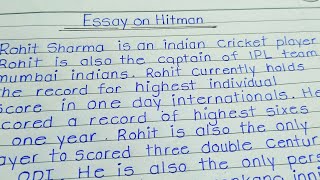 Essay on Hitman
Rohit Sharma is an indian cricket player
Rohit is also the captain of IPL team
mumbai indians. Rohit currently holds
the record for highest individual
score in one day internationals. He
scored a record of highest sixes
one year. Rohit is also the only
ayer to scored three double centur
ODI. He is also the only pers